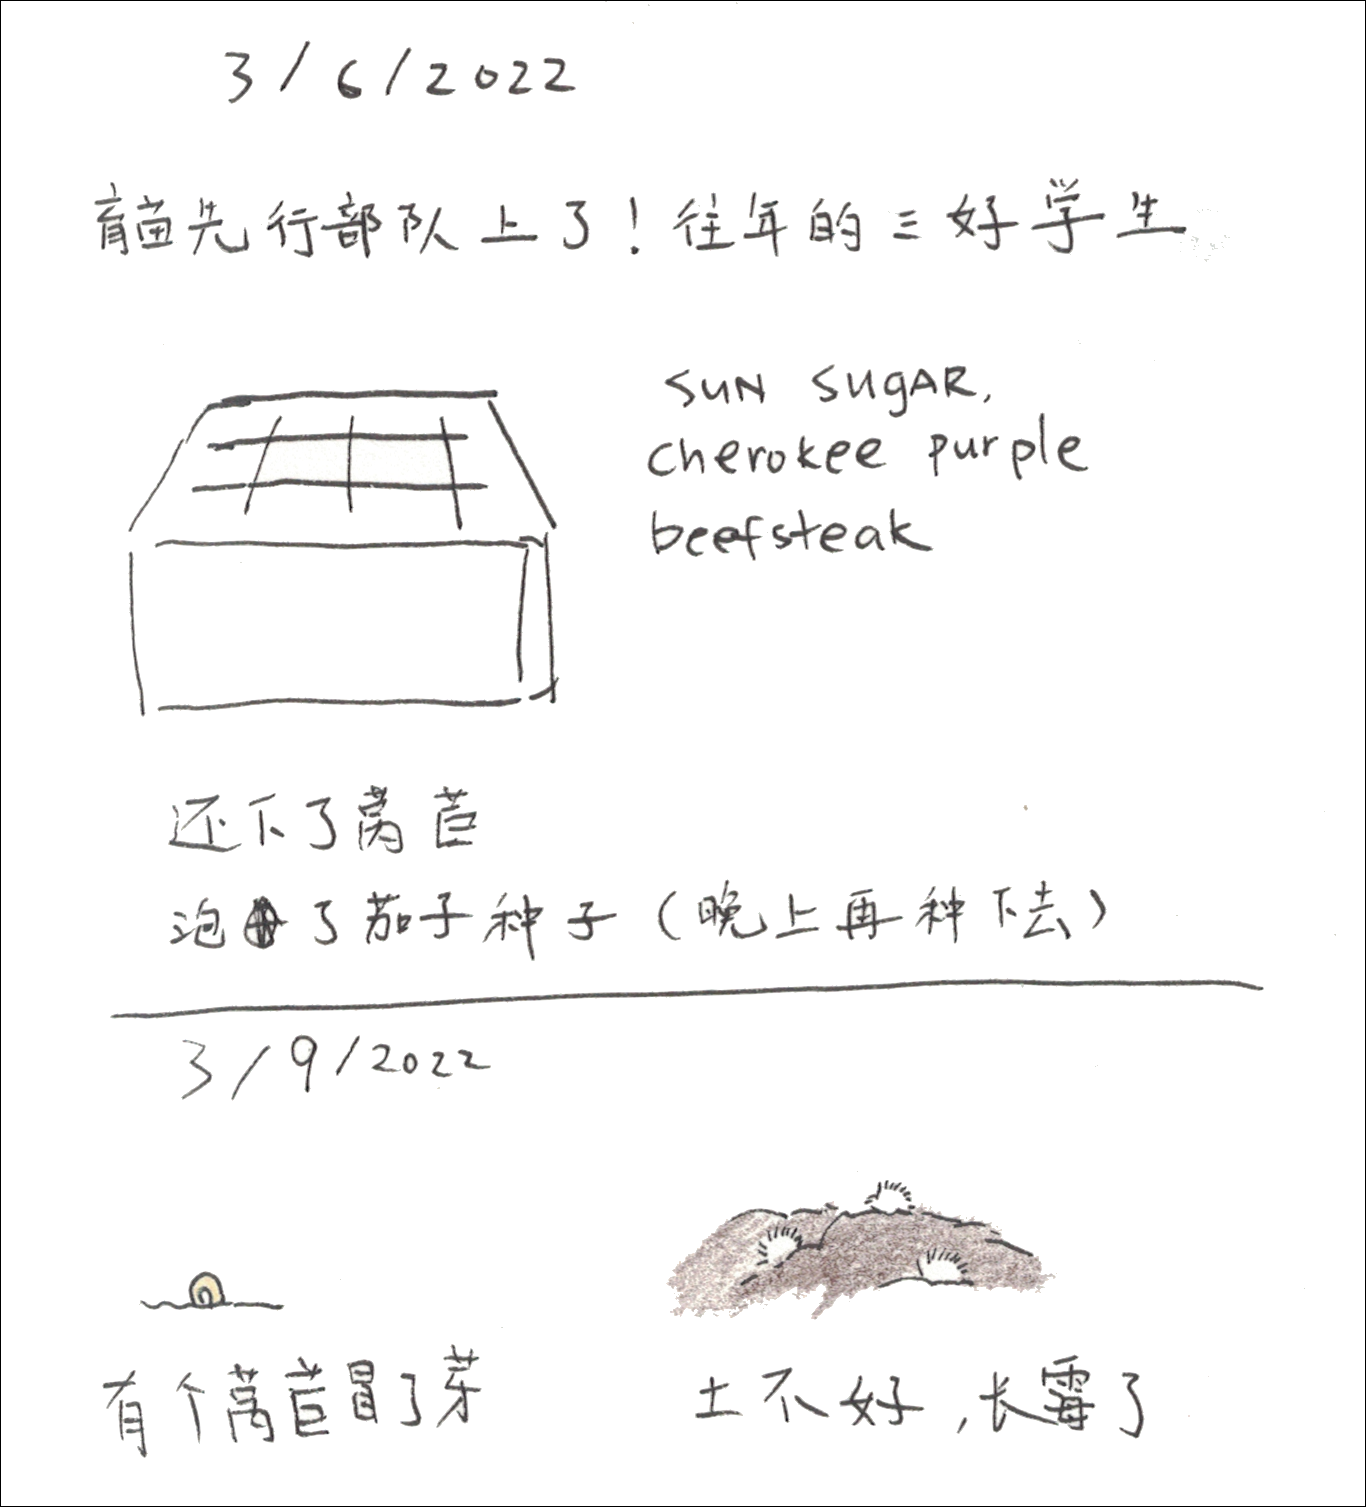 3/6/2022
育苗先行部队上了！往年的三好学生
SUN SUGAR,
cherokee purple
beefsteak
还下了莴苣
泡了茄子种子（晚上再种下去）
3/9/2022
有个莴苣冒了芽
土不好，长霉了